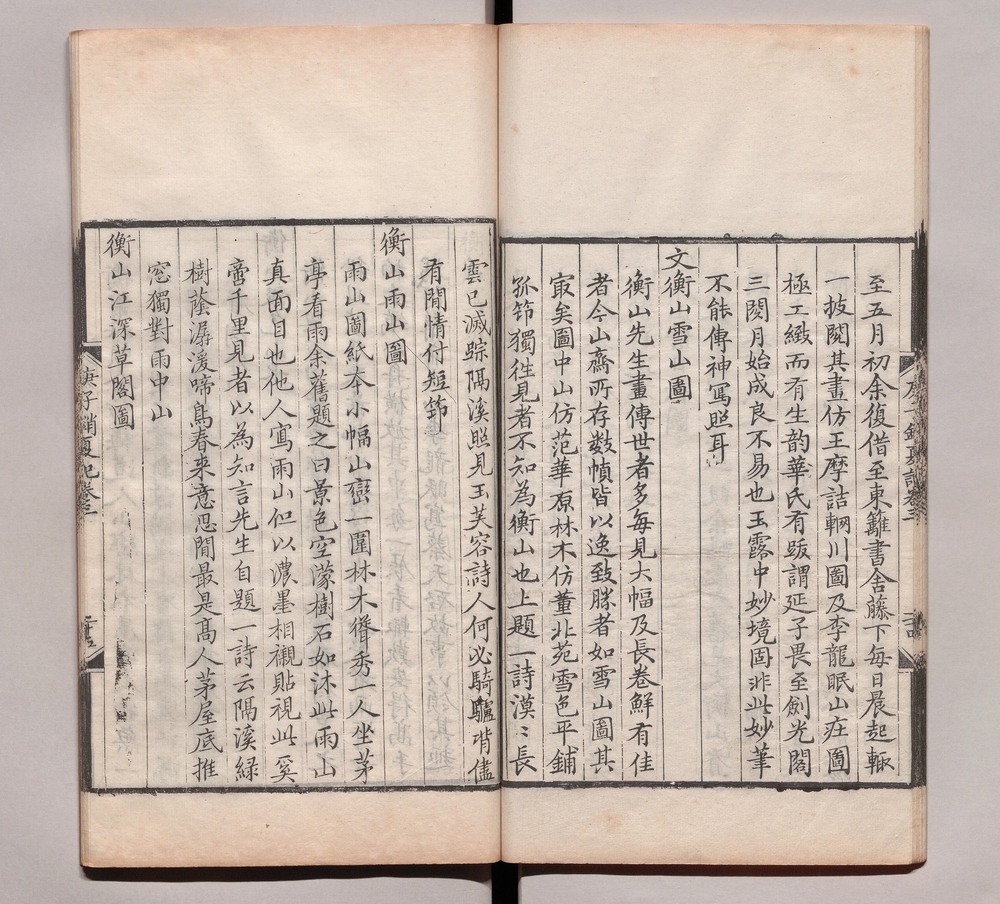 至五月初余復借至東籬書舍藤下每日晨起輙
一披閱其畫仿王摩詰輞川圖及李龍眠山庄圖
極工緻而有生韵華氏有跋謂延予畏至劍光閣
三閱月始成良不易也玉露中妙境固非此妙筆
不能傳神寫照耳
文衡山雪山圖
衡山先生畫傳世者多每見大幅及長卷鮮有佳
者今山齋所存数幀皆以逸致勝者如雪山圖其
冣矣圖中山仿范華原林木仿董北苑雪色平鋪
孤笻獨徃見者不知為衡山也上題一詩漠〻長
雲已滅踪隔溪照見玉芙容詩人何必騎驢背儘
有閒情付短笻
衡山雨山圖
雨山圖紙本小幅山巒一圍林木簪秀一人坐茅
亭看雨余舊題之曰景色空濛樹石如沐此雨山
真面目也他人寫雨山但以濃墨相襯貼視此奚
啻千里見者以為知言先生自題一詩云隔溪緑
樹蔭潺湲啼鳥春来意思閒最是高人茅屋底推
窓獨對雨中山
衡山江深草閣圖
庚子銷夏記卷二